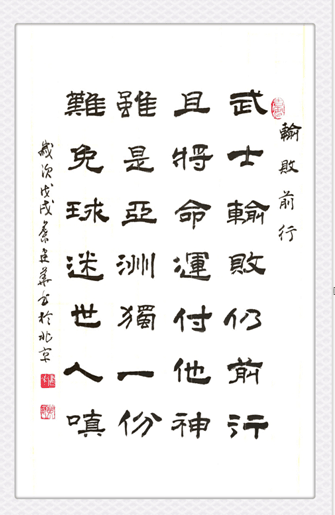 輸敗前行
武士輸敗仍前行
且將命運付他神
雖是亞洲獨一份
難免球迷世人嗔
歲次戊戌 書於北京